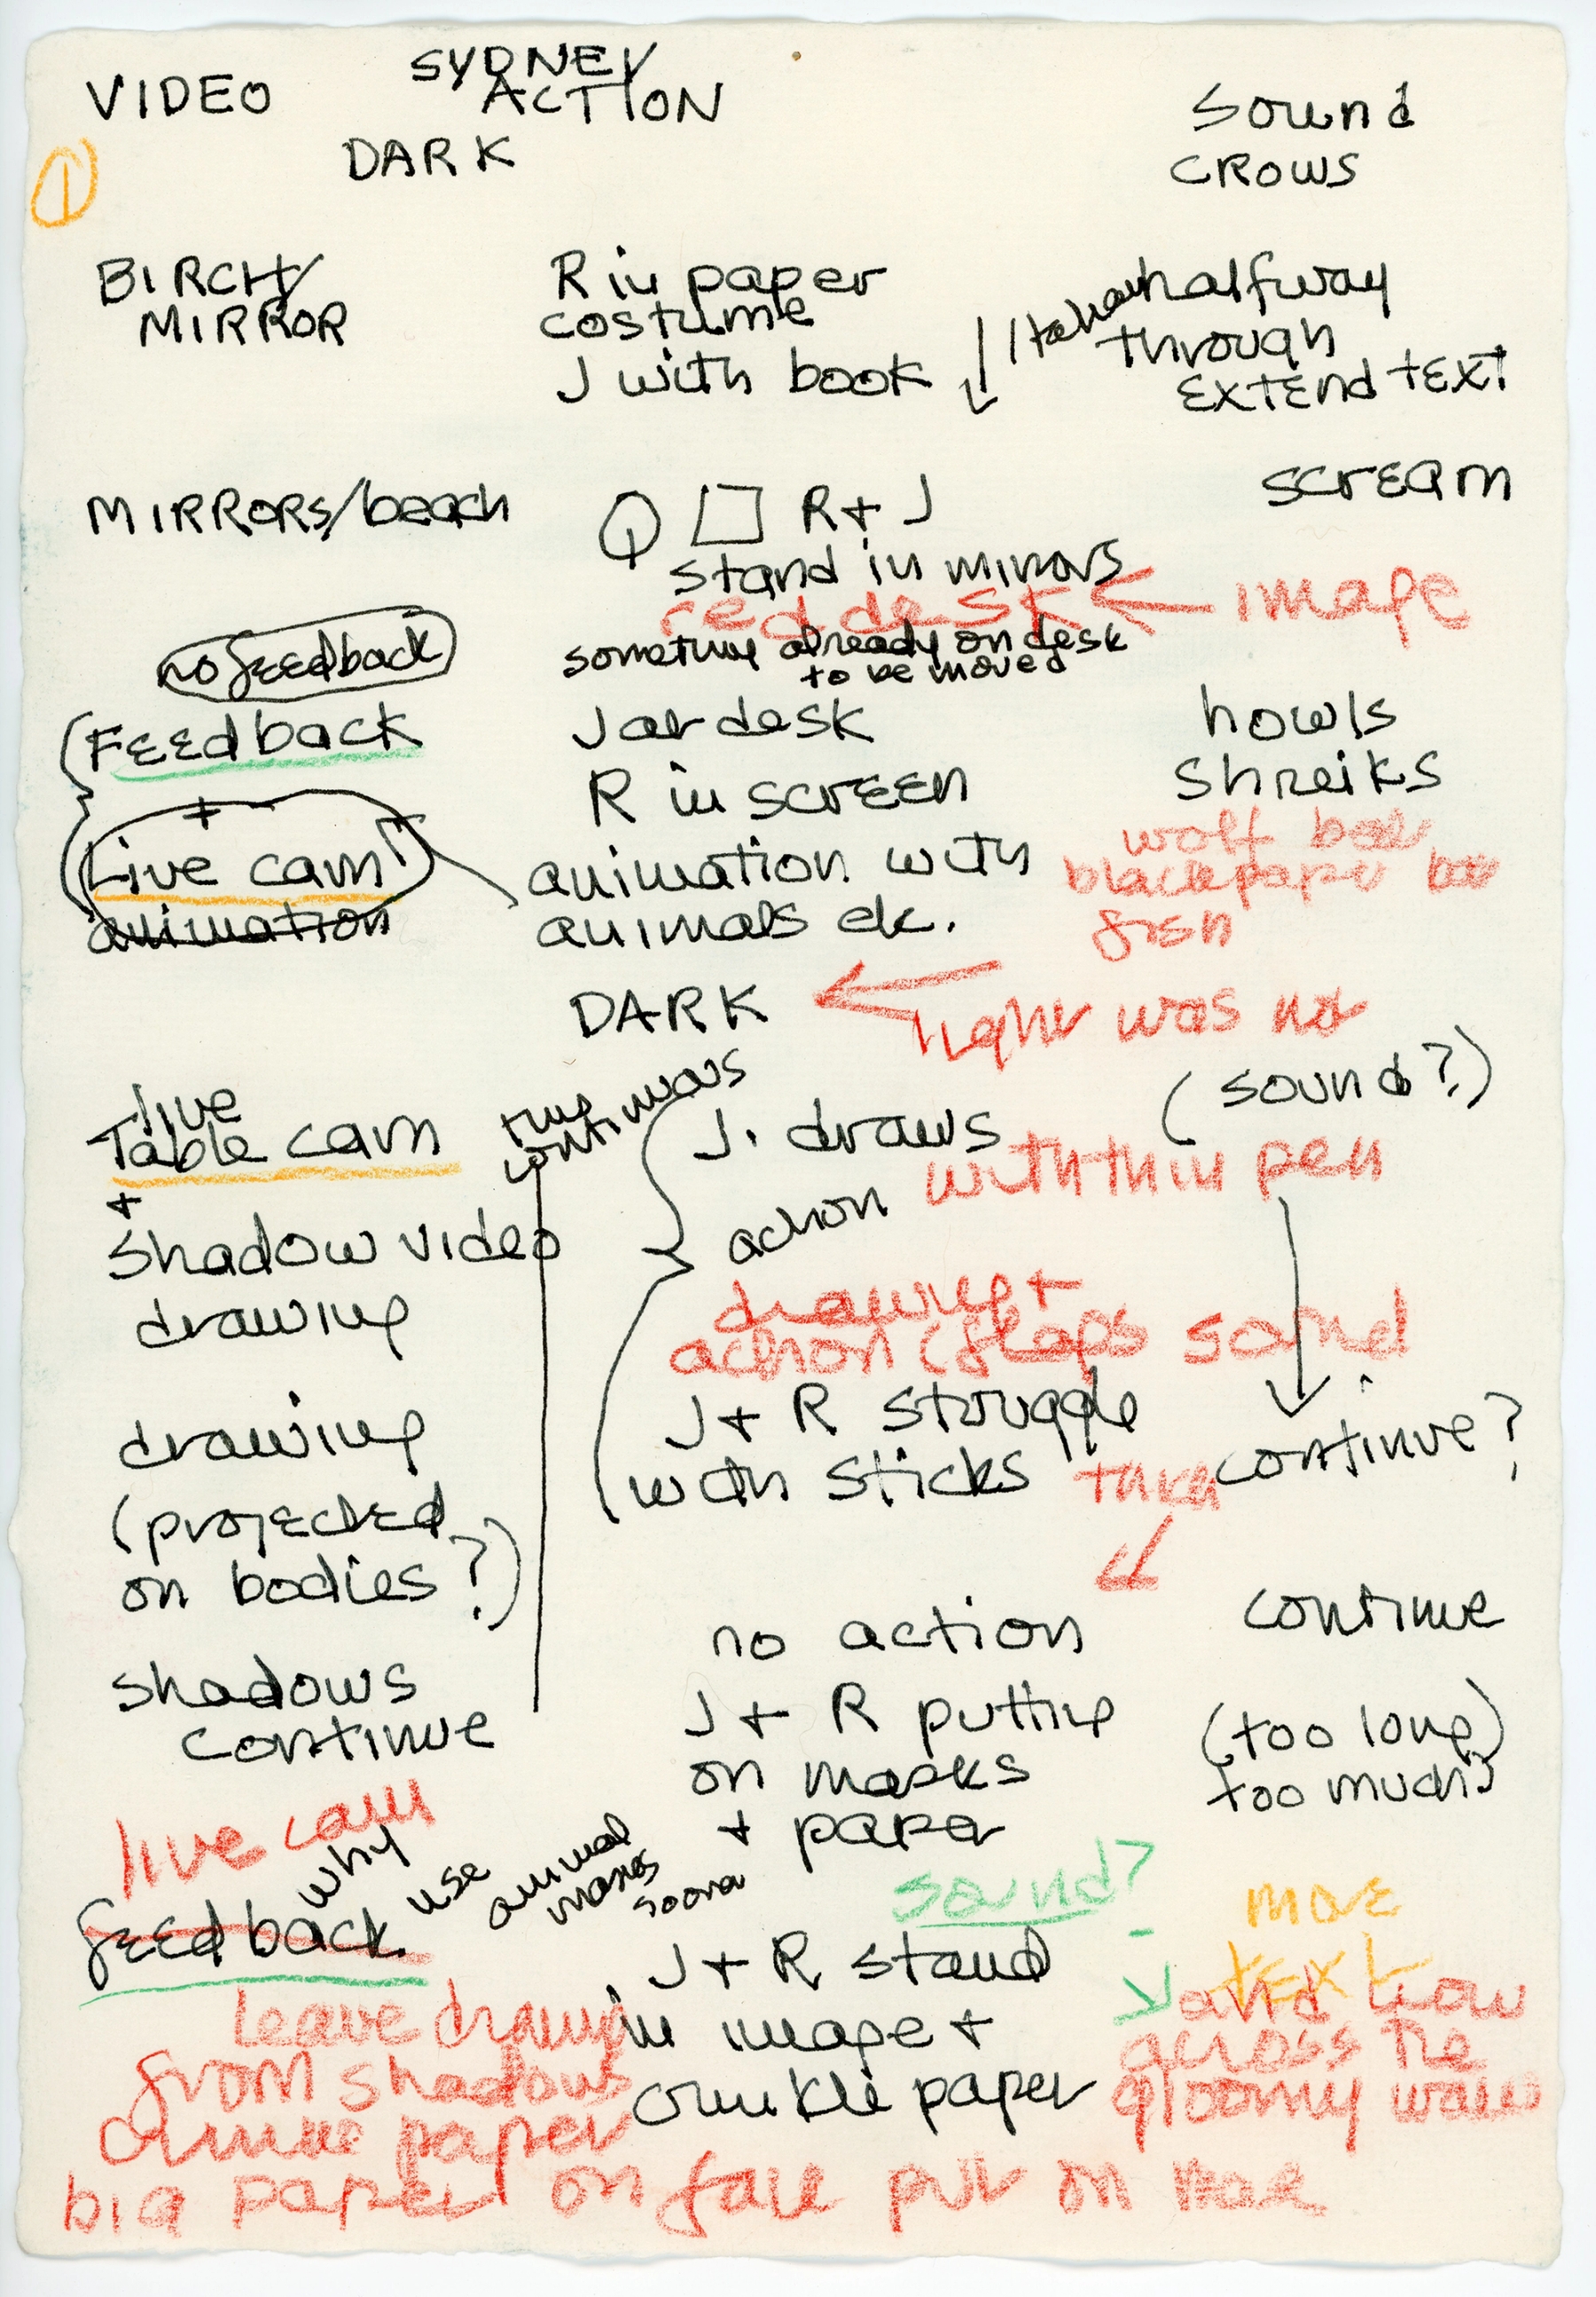 SYDNEY
VIDEO ACTION Sound
① DARK CROWS
BIRCH/ R in paper halfway
MIRROR costume through
J with book EXTEND TEXT
MIRRORS/beach R + J SCREAM
stand in mirrors
red desk image
no feedback something already on desk
to be moved
Feedback J at desk howls
+ R in SCREEN Shreiks
Live cam animation with wolf
animation animals etc. black paper
fish
DARK
light was not
live (sound?)
Table cam J. draws
continuous
+ with thin pen
Shadow video action
drawing drawing +
action (flaps sound
drawing J + R struggle
(projected with sticks continue?
on bodies?)
no action continue
shadows J + R putting (too long)
continue on masks too much?
+ paper
live cam
why use animal masks sooner
sound? more
feedback J + R stand text
Leave drawing in image + and how
from shadows crunkle paper across the
paper gloomy
big paper on face put on